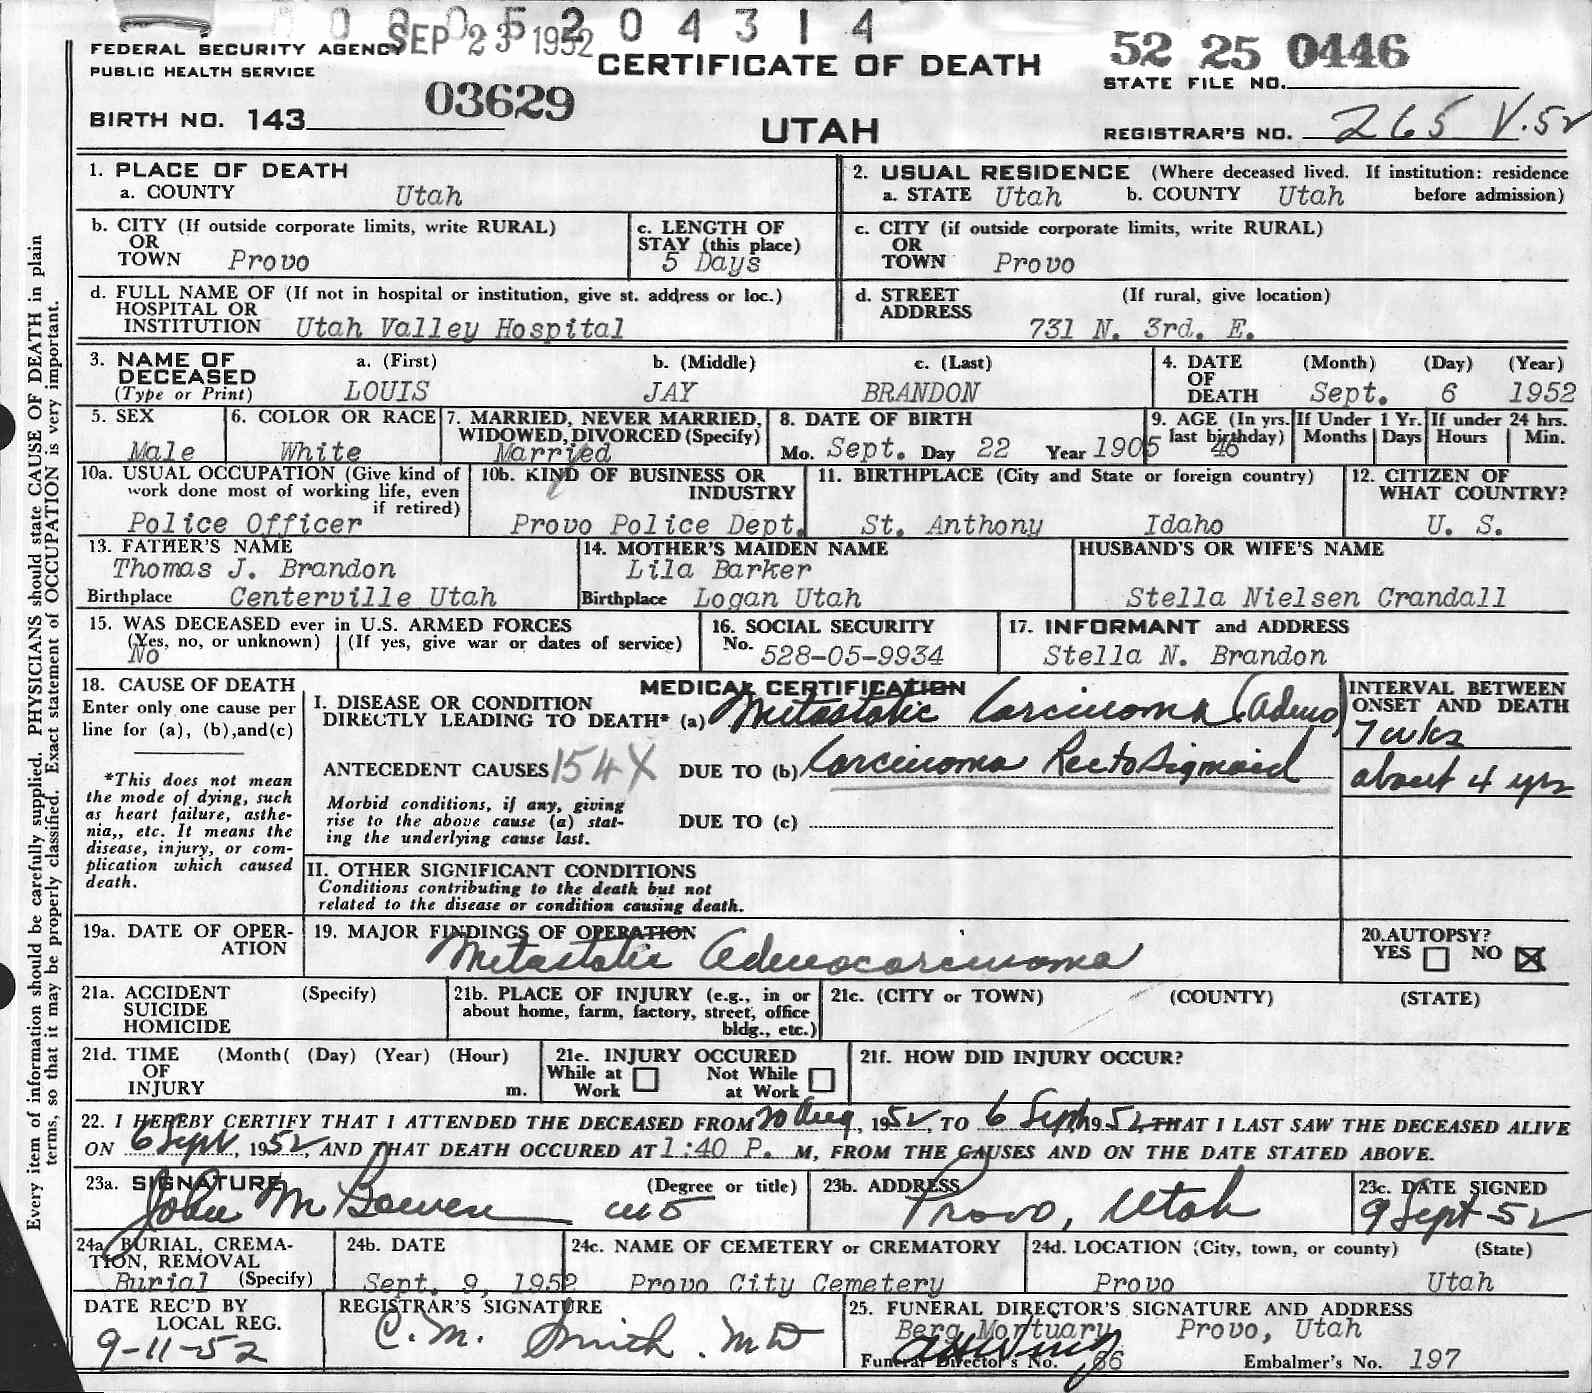 0 0 0 5 2 0 4 3 1 4
SEP 23 1952
FEDERAL SECURITY AGENCY
PUBLIC HEALTH SERVICE
CERTIFICATE OF DEATH
52 25 0446
STATE FILE NO.
BIRTH NO. 143 03629
UTAH
REGISTRAR'S NO. 265 V.52
Every item of information should be carefully supplied. PHYSICIANS should state CAUSE OF DEATH in plain
terms, so that it may be properly classified. Exact statement of OCCUPATION is very important.
1. PLACE OF DEATH
a. COUNTY Utah
2. USUAL RESIDENCE (Where deceased lived. If institution: residence
a. STATE Utah b. COUNTY Utah before admission)
b. CITY (If outside corporate limits, write RURAL)
OR
TOWN Provo
c. LENGTH OF
STAY (this place)
5 Days
c. CITY (if outside corporate limits, write RURAL)
OR
TOWN Provo
d. FULL NAME OF (If not in hospital or institution, give st. address or loc.)
HOSPITAL OR
INSTITUTION Utah Valley Hospital
d. STREET (If rural, give location)
ADDRESS
731 N. 3rd. E.
3. NAME OF DECEASED
(Type or Print)
a. (First) b. (Middle) c. (Last)
LOUIS JAY BRANDON
4. DATE OF DEATH (Month) (Day) (Year)
Sept. 6 1952
5. SEX
Male
6. COLOR OR RACE
White
7. MARRIED, NEVER MARRIED,
WIDOWED, DIVORCED (Specify)
Married
8. DATE OF BIRTH
Mo. Sept. Day 22 Year 1905
9. AGE (In yrs. last birthday)
46
If Under 1 Yr. If under 24 hrs.
Months Days Hours Min.
10a. USUAL OCCUPATION (Give kind of
work done most of working life, even
if retired)
Police Officer
10b. KIND OF BUSINESS OR
INDUSTRY
Provo Police Dept.
11. BIRTHPLACE (City and State or foreign country)
St. Anthony Idaho
12. CITIZEN OF
WHAT COUNTRY?
U. S.
13. FATHER'S NAME
Thomas J. Brandon
Birthplace Centerville Utah
14. MOTHER'S MAIDEN NAME
Lila Barker
Birthplace Logan Utah
HUSBAND'S OR WIFE'S NAME
Stella Nielsen Crandall
15. WAS DECEASED ever in U.S. ARMED FORCES
(Yes, no, or unknown) (If yes, give war or dates of service)
No
16. SOCIAL SECURITY
No. 528-05-9934
17. INFORMANT and ADDRESS
Stella N. Brandon
18. CAUSE OF DEATH
Enter only one cause per
line for (a), (b),and(c)
*This does not mean
the mode of dying, such
as heart failure, asthe-
nia,, etc. It means the
disease, injury, or com-
plication which caused
death.
MEDICAL CERTIFICATION
I. DISEASE OR CONDITION
DIRECTLY LEADING TO DEATH* (a) Metastatic Carcinoma (Adeno)
INTERVAL BETWEEN
ONSET AND DEATH
7 wks
ANTECEDENT CAUSES 154X DUE TO (b) Carcinoma RectoSigmoid
about 4 yrs
Morbid conditions, if any, giving
rise to the above cause (a) stat-
ing the underlying cause last.
DUE TO (c)
II. OTHER SIGNIFICANT CONDITIONS
Conditions contributing to the death but not
related to the disease or condition causing death.
19a. DATE OF OPER-
ATION
19. MAJOR FINDINGS OF OPERATION
Metastatic Adenocarcinoma
20. AUTOPSY?
YES NO
21a. ACCIDENT (Specify)
SUICIDE
HOMICIDE
21b. PLACE OF INJURY (e.g., in or
about home, farm, factory, street, office
bldg., etc.)
21c. (CITY or TOWN) (COUNTY) (STATE)
21d. TIME (Month( (Day) (Year) (Hour)
OF
INJURY m.
21e. INJURY OCCURED
While at Work Not While at Work
21f. HOW DID INJURY OCCUR?
22. I HEREBY CERTIFY THAT I ATTENDED THE DECEASED FROM 20 Aug, 1952, TO 6 Sept, 1952, THAT I LAST SAW THE DECEASED ALIVE
ON 6 Sept, 1952, AND THAT DEATH OCCURED AT 1:40 P. M, FROM THE CAUSES AND ON THE DATE STATED ABOVE.
23a. SIGNATURE (Degree or title)
John M Bowen MD
23b. ADDRESS
Provo, Utah
23c. DATE SIGNED
9 Sept-52
24a BURIAL, CREMA-
TION, REMOVAL
Burial (Specify)
24b. DATE
Sept. 9, 1952
24c. NAME OF CEMETERY or CREMATORY
Provo City Cemetery
24d. LOCATION (City, town, or county) (State)
Provo Utah
DATE REC'D BY
LOCAL REG.
9-11-52
REGISTRAR'S SIGNATURE
C. M. Smith. MD
25. FUNERAL DIRECTOR'S SIGNATURE AND ADDRESS
Berg Mortuary Provo, Utah
Funeral Director's No. 86 Embalmer's No. 197